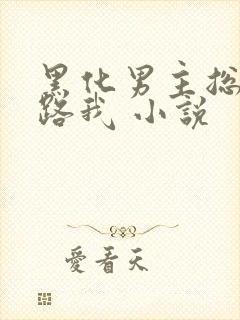 黑化男主捻
路我 小說
愛看天